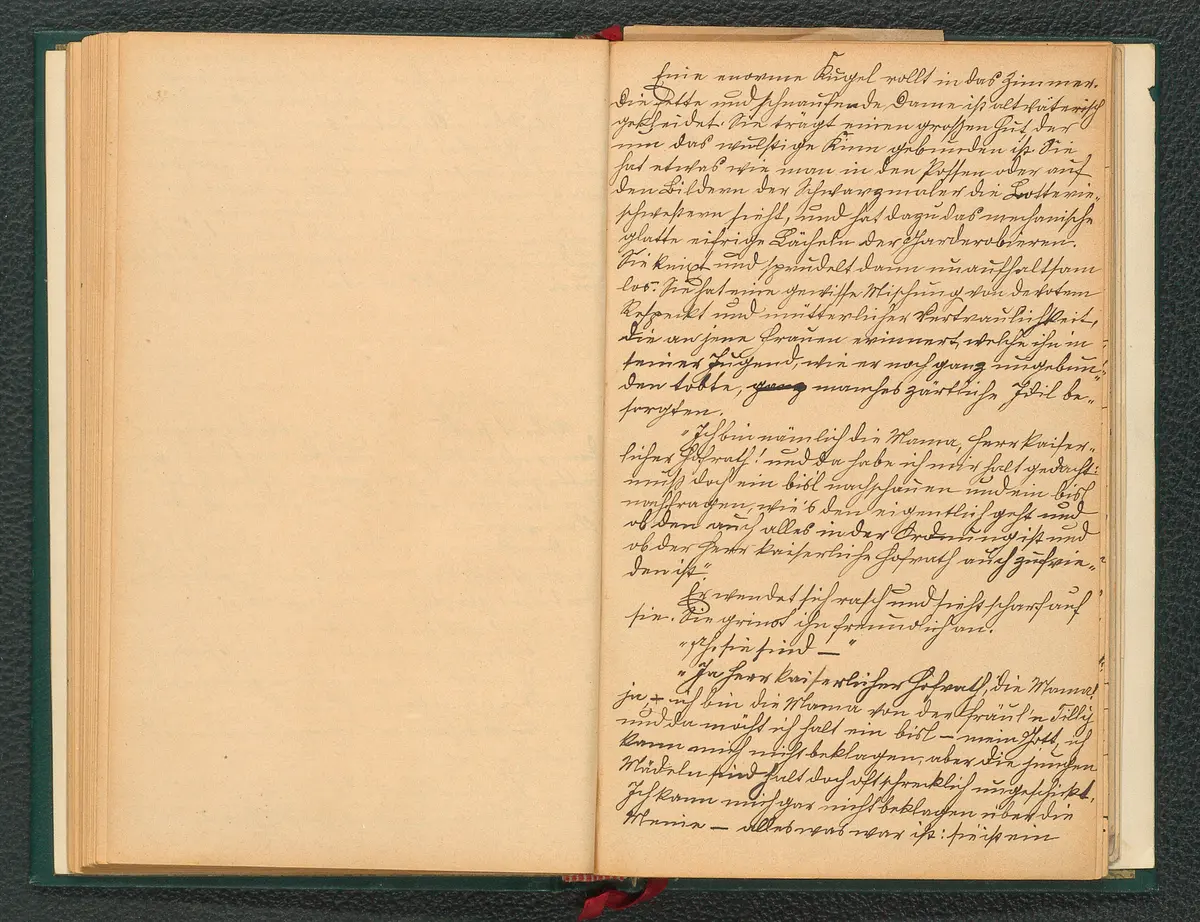 Eine enorme Kugel rollt in das Zimmer.
Die fette und schnaufende Dame ist altväterisch
gekleidet. Sie trägt einen grossen Hut der
um das wulstige Kinn gebunden ist. Sie
hat etwas wie man in den Possen oder auf
den Bildern der Schwarzmaler die Lotterie-
schwestern sieht, und hat dazu das mechanische
glatte eifrige Lächeln der Garderobieren.
Sie knixt und sprudelt dann unaufhaltsam
los. Sie hat eine gewisse Mischung von devotem
Respeckt und mütterlicher Vertraulichkeit,
die an jene Frauen erinnert welche ihn in
seiner Jugend, wie er noch ganz ungebun-
den tobte, ganz manches zärtliche Idil be-
sorgten.
"Ich bin nämlich die Mama, Herr kaiser-
licher Hofrath! und da habe ich mir halt gedacht:
muß doch ein bisl nachschauen und ein bisl
nachfragen, wie's den eigentlich geht und
ob den auch alles in der Ordnung ist und
ob der Herr kaiserliche Hofrath auch zufrie-
den ist".
Er wendet sich rasch und sieht scharf auf
sie. Sie grinst ihn freundlich an.
"Ah, sie sind — "
"Ja Herr kaiserlicher Hofrath, die Mama!
ja, – ich bin die Mama von der Fräul'n Tilly
und da möcht ich halt ein bisl – mein Gott, ich
kann mich nicht beklagen, aber die jungen
Mädeln sind halt doch oft schrecklich ungeschickt.
Ich kann mich gar nicht beklagen über die
Meine – alles was war ist: sie ist ein